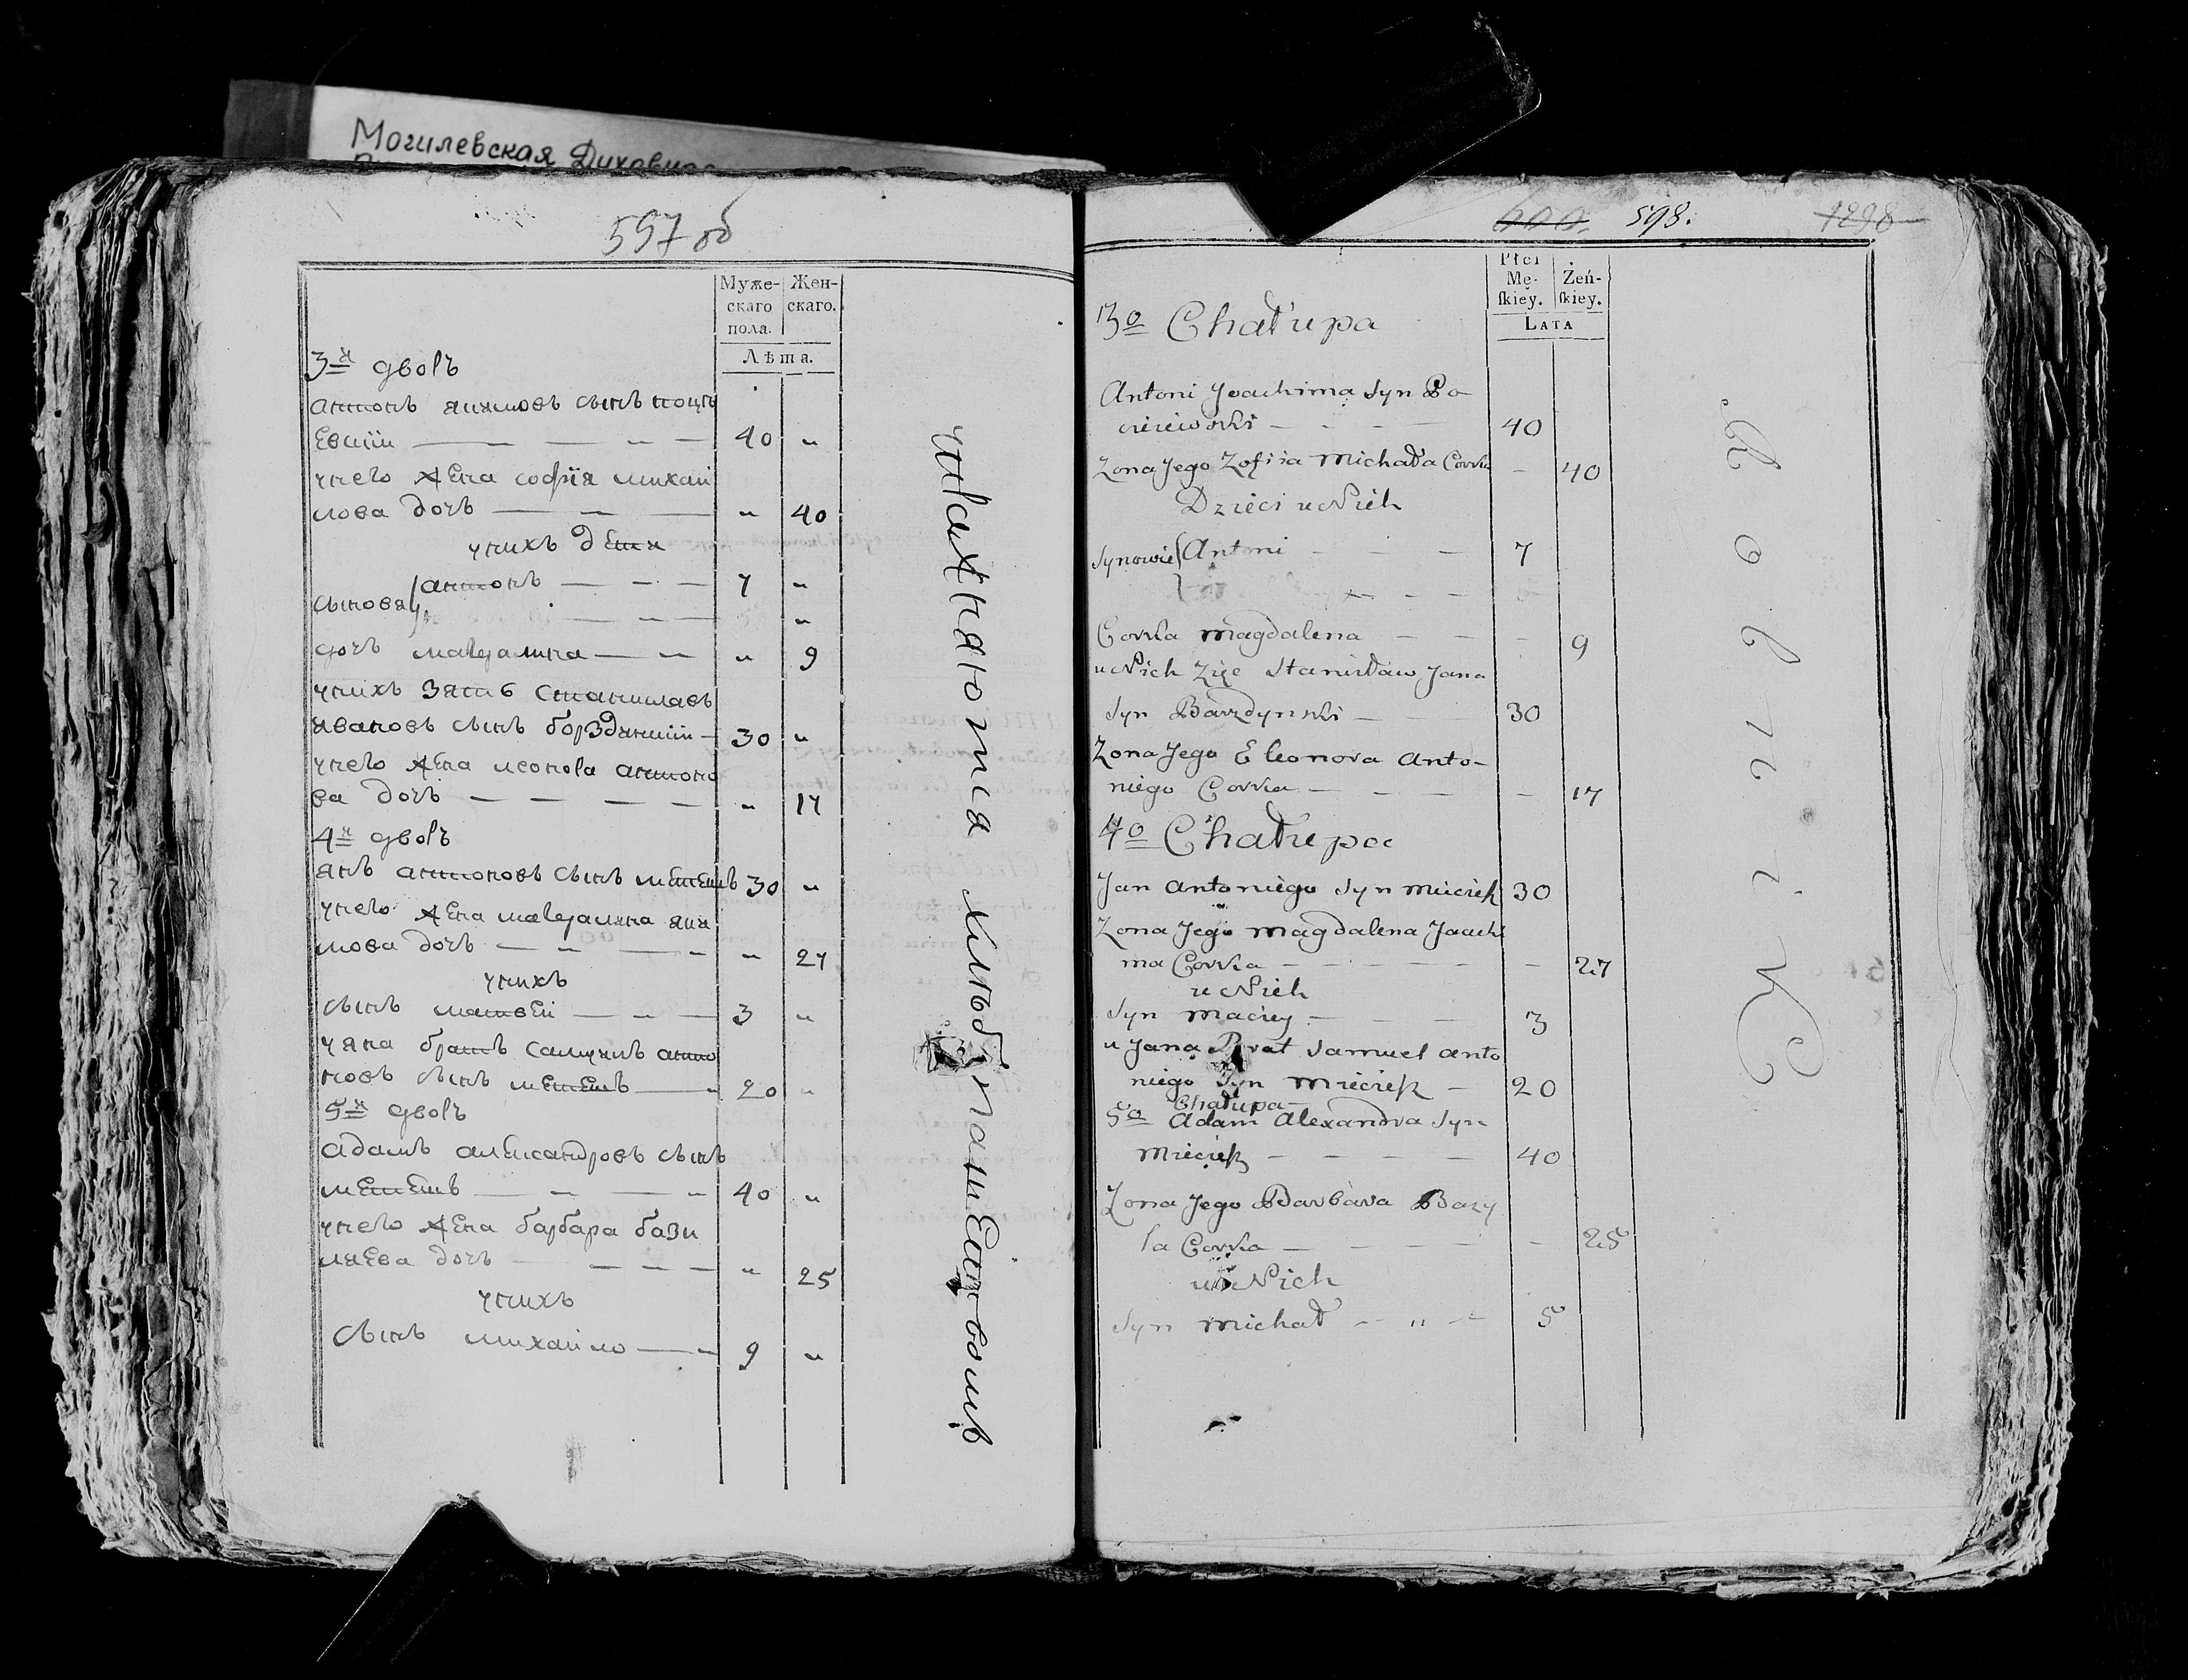 Могилевская Духовная
597 об
Муже-
скаго
пола.
Жен-
скаго.
Лѣта.
3я дворъ
антонъ якимовъ сынъ поце
евскій — — — 40 "
унего жена софія михай
лова дочь — — — " 40
унихъ дети
сыновя антонъ — — — 7 "
дочь магдалина — — " 9
унихъ зять станиславъ
ивановъ сынъ борздынскій — 30 "
унего жена леонора антоно
ва дочь — — — — " 17
4я дворъ
янъ антоновъ сынъ 30 "
унего жена магдалина яки
мова дочь — — — " 27
унихъ
сынъ матвей — — — 3 "
уяна братъ самуилъ анто
новъ сынъ — 20 "
5я дворъ
адамъ александровъ сынъ
— — — 40 "
унего жена барбара бази
ляева дочь — — — " 25
унихъ
сынъ михайло — — 9 "
упражняются хлѣбопашествомъ
600. 598. 1298
Płci
Mę-
skiey.
Żeń-
skiey.
LATA
3o Chałupa
Antoni Joachima Syn Po
cieiewski — — — 40
Zona Jego Zofiia Michała Corka — 40
Dzieci u Nich
Synowie Antoni — — — 7
Corka Magdalena — — — 9
u Nich Zyie Stanisław Jana
Syn Barzdynski — — 30
Zona Jego Eleonora Anto-
niego Corka — — — — 17
4o Chałupa
Jan Antoniego Syn 30
Zona Jego Magdalena Joachi
ma Corka — — — — — 27
u Nich
Syn Maciey — — — 3
u Jana Brat Samuel Anto
niego Syn — 20
Chałupa —
5o Adam Alexandra Syn
— — — — 40
Zona Jego Barbara Bazy
la Corka — — — — — 25
u Nich
Syn Michał — " — 5
Rolnik